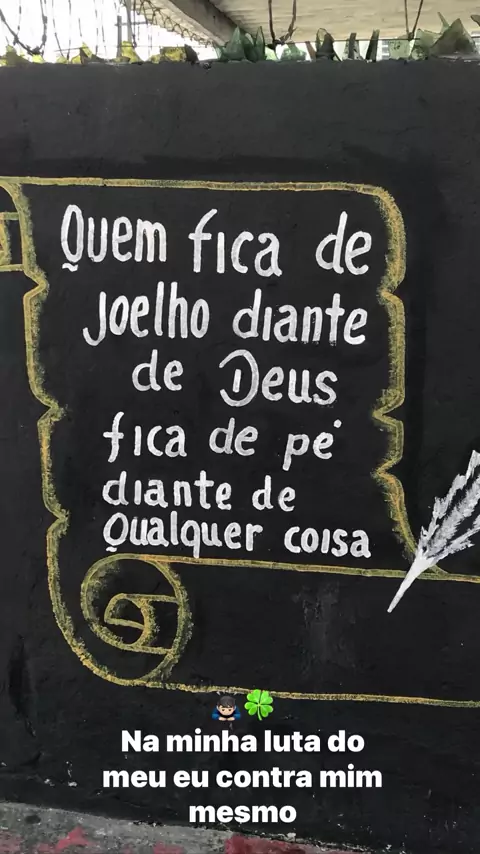 Quem fica de
Joelho diante
de Deus
fica de pé
diante de
Qualquer coisa
🙇🏻‍♂️🍀
Na minha luta do
meu eu contra mim
mesmo